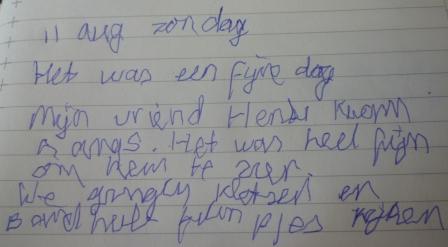 11 aug zondag
Het was een fijne dag
mijn vriend Henk kwam
langs. Het was heel fijn
om hem te zien.
We gingen kletsen en
heel fijn